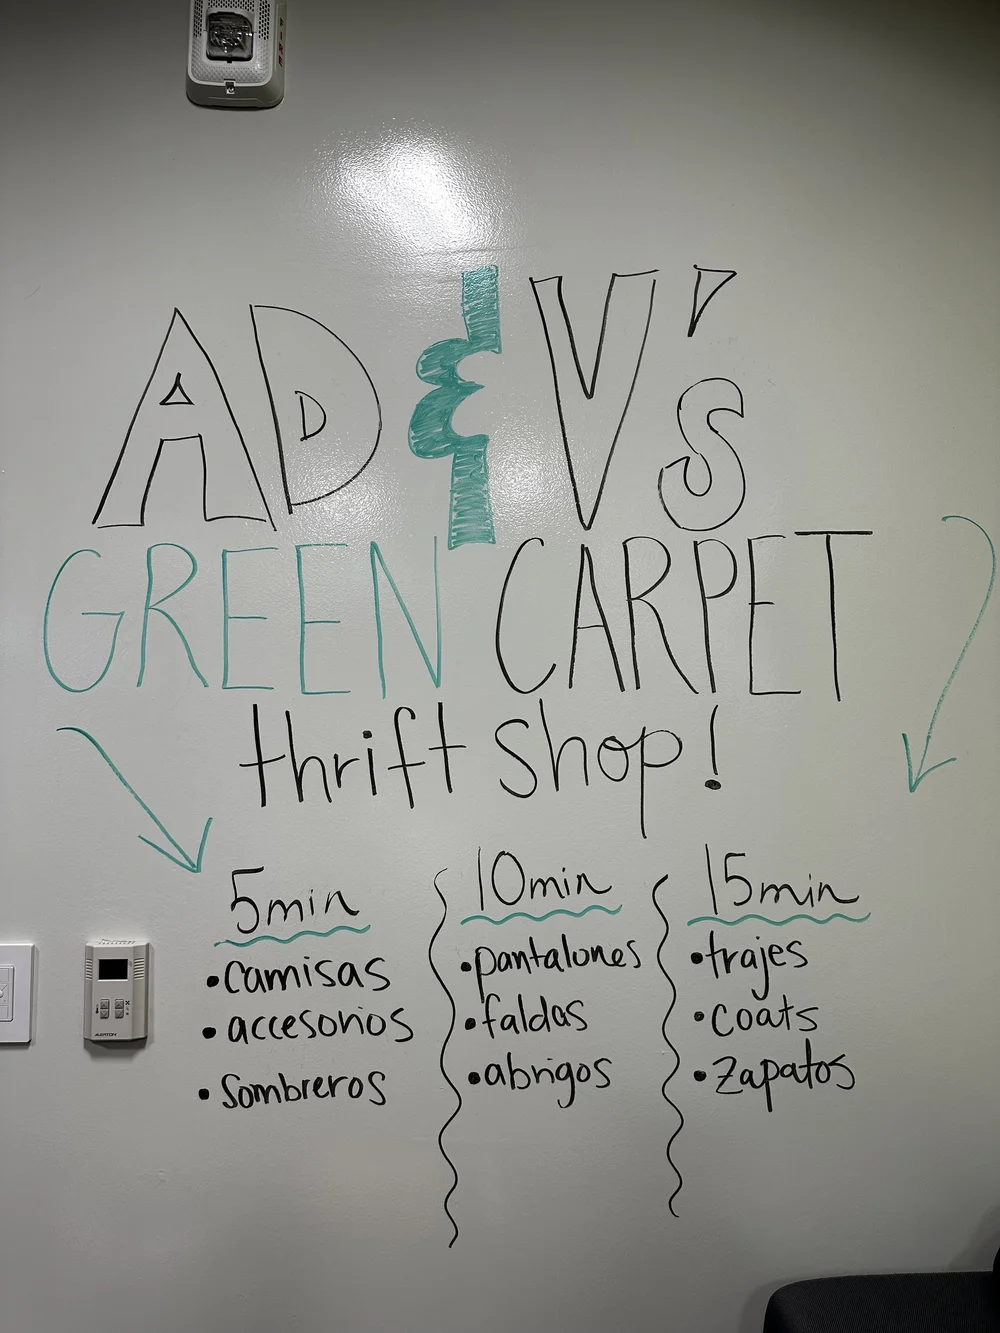 AD & V's
GREEN CARPET
thrift shop!
5min
• camisas
• accesorios
• Sombreros
10min
• pantalones
• faldas
• abrigos
15min
• trajes
• coats
• Zapatos